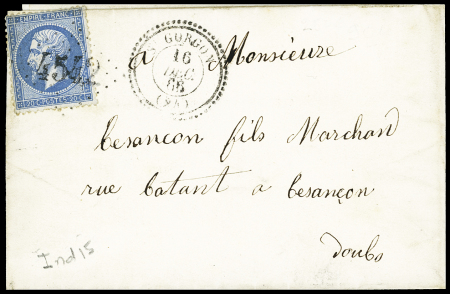 EMPIRE FRANC
4542
20 C POSTES 20 C
GORGON
16
DEC.
66
(94)
a Monsieure
besancon fils Marchand
rue batant a besançon
doubs
Ind 15